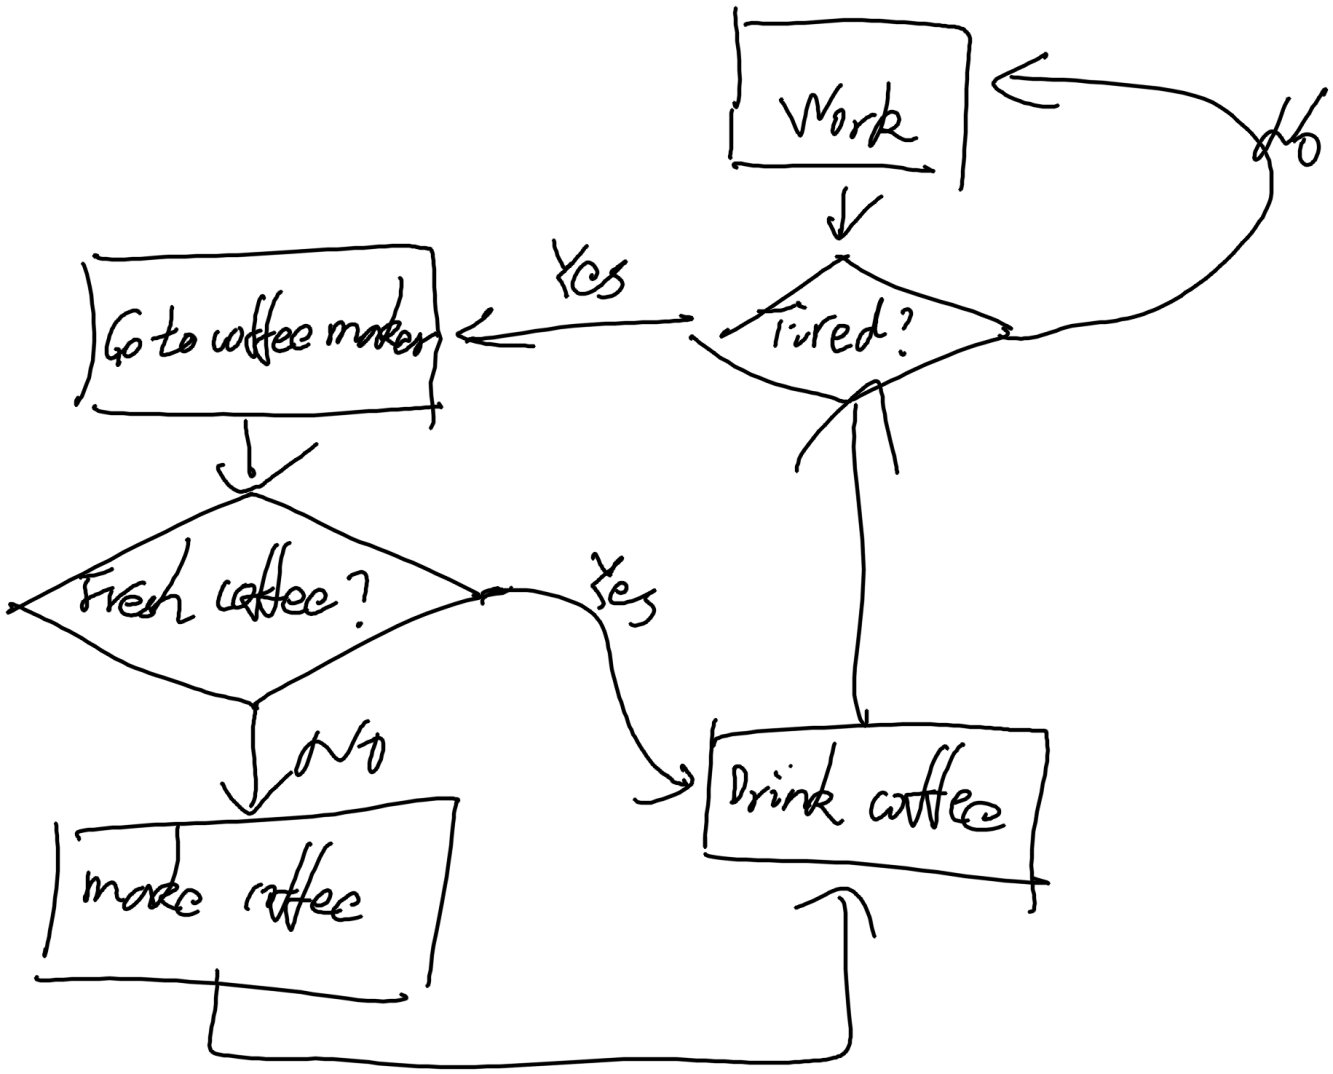 Work
No
Yes
Tired?
Go to coffee maker
Fresh coffee?
Yes
No
Drink coffee
make coffee